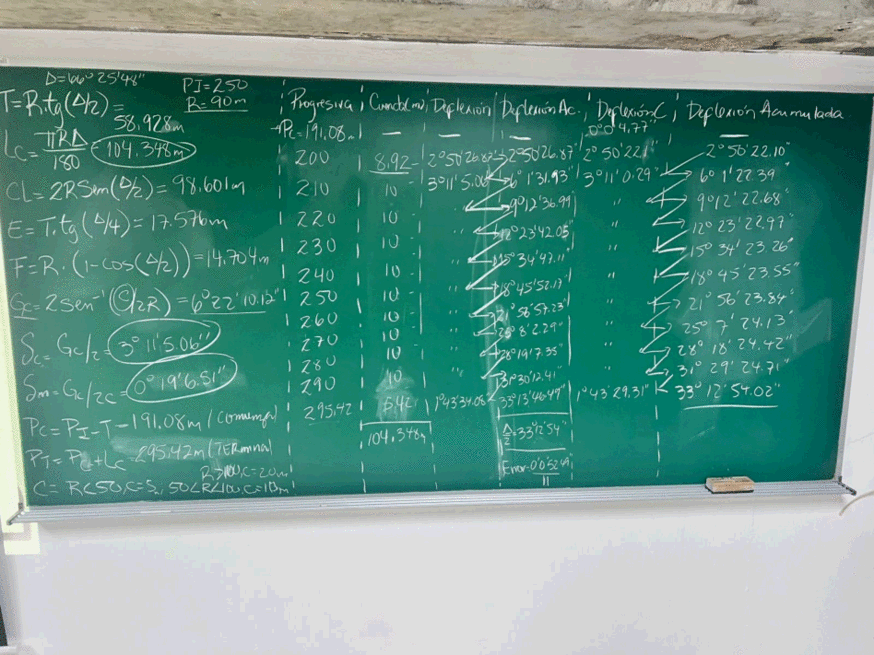 Δ=66°25'48"
PI=250
R=90m
T=R.tg(Δ/2)=
58.928m
Lc=πRΔ/180=104.348m
CL=2RSen(Δ/2)=98.601m
E=T.tg(Δ/4)=17.576m
F=R.(1-cos(Δ/2))=14.704m
Gc=2sen⁻¹(C/2R)=6°22'10.12"
δc=Gc/2=3°11'5.06"
δm=Gc/2c=0°19'6.51"
Pc=PI-T=191.08m
PT=Pc+Lc=295.42m (Terminal
R>100, C=20m
C=R<50, C=5, 50<R<100, C=10m
Progresiva | Cuerda(m) | Deflexión | Deflexión Ac. | Deflexión C | Deflexión Acumulada
Pc=191.08m | — | — | — | 0°0'4.77" | —
200 | 8.92 | 2°50'26.87" | 2°50'26.87" | 2°50'22.1" | 2°50'22.10"
210 | 10 | 3°11'5.06" | 6°1'31.93" | 3°11'0.29" | 6°1'22.39"
220 | 10 | " | 9°12'36.99" | " | 9°12'22.68"
230 | 10 | " | 12°23'42.05" | " | 12°23'22.97"
240 | 10 | " | 15°34'47.11" | " | 15°34'23.26"
250 | 10 | " | 18°45'52.17" | " | 18°45'23.55"
260 | 10 | " | 21°56'57.23" | " | 21°56'23.84"
270 | 10 | " | 25°8'2.29" | " | 25°7'24.13"
280 | 10 | " | 28°19'7.35" | " | 28°18'24.42"
290 | 10 | " | 31°30'12.41" | " | 31°29'24.71"
295.42 | 5.42 | 1°43'34.08" | 33°13'46.49" | 1°43'29.31" | 33°12'54.02"
104.348m
Δ/2=33°12'54"
Error=0°0'52.49"